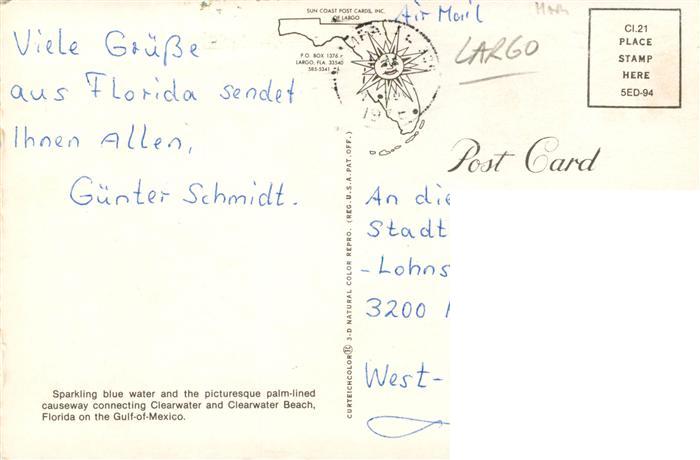 Viele Grüße
aus Florida sendet
Ihnen Allen,
Günter Schmidt.
Sparkling blue water and the picturesque palm-lined
causeway connecting Clearwater and Clearwater Beach,
Florida on the Gulf-of-Mexico.
SUN COAST POST CARDS, INC.
OF LARGO
P. O. BOX 1376
LARGO, FLA. 33540
585-5341
CURTEICHCOLOR 3-D NATURAL COLOR REPRO. (REG. U.S.A. PAT. OFF.)
Air Mail
LARGO
CI.21
PLACE
STAMP
HERE
5ED-94
Post Card
An die
Stadt
-Lohns
3200
West-